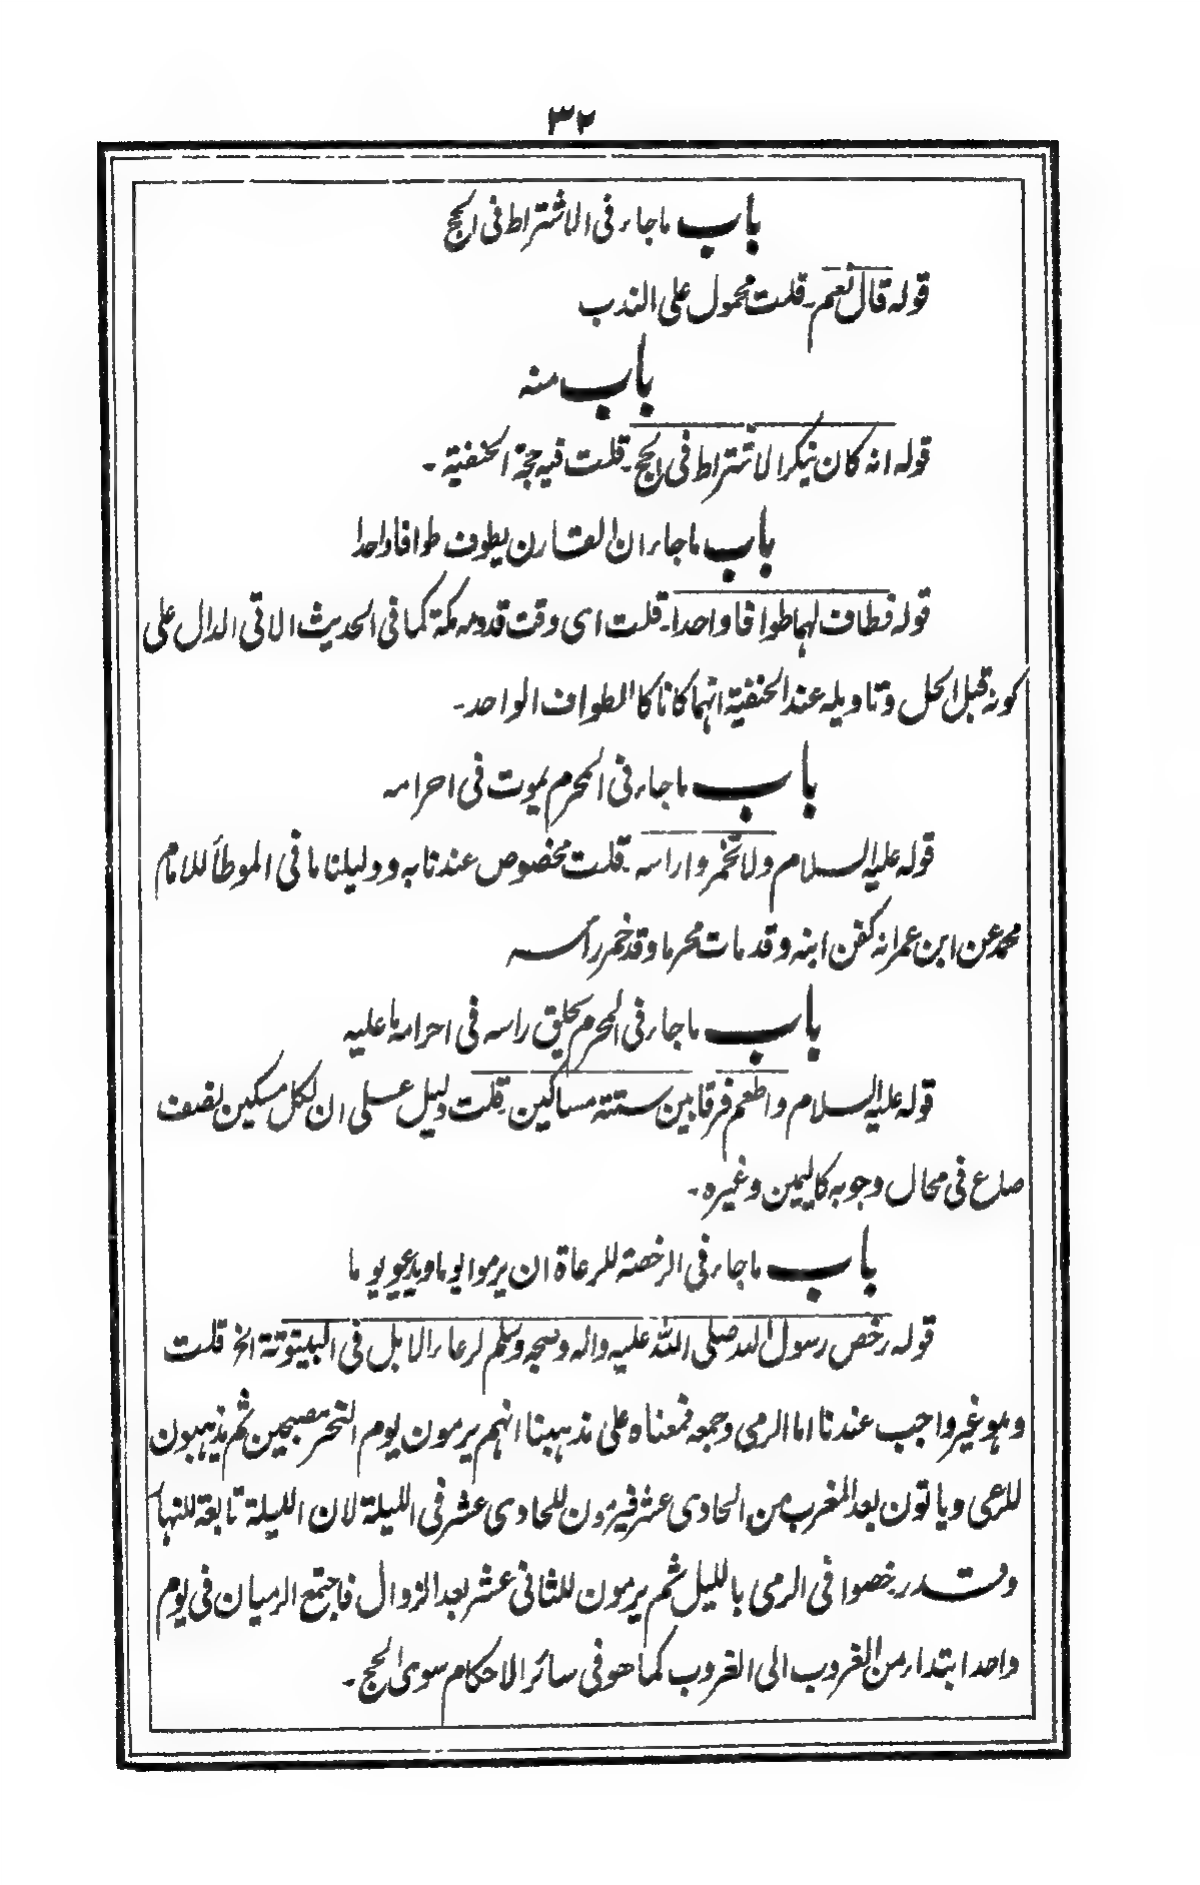 ٣٢
باب ماجاء فی الاشتراط فی الحج
قوله قال نعم۔ قلت محمول علی الندب
باب منه
قوله انه كان ینكر الاشتراط فی الحج۔ قلت فیه حجة الحنفیة۔
باب ماجاء ان القارن یطوف طوافا واحدا
قوله فطاف لهما طوافا واحدا۔ قلت ای وقت قدومه مكة كما فی الحدیث الاتی الدال علی
كونه قبل الحل وتاویله عند الحنفیة انهما كانا كالطواف الواحد۔
باب ماجاء فی المحرم یموت فی احرامه
قوله علیه السلام ولا تخمروا راسه۔ قلت مخصوص عندنا به ودلیلنا ما فی الموطأ للامام
محمد عن ابن عمر انه كفن ابنه وقد مات محرما وقد خمر رأسه
باب ماجاء فی المحرم یحلق راسه فی احرامه ما علیه
قوله علیه السلام واطعم فرقا بین ستة مساكین۔ قلت دلیل علی ان لكل مسكین نصف
صاع فی محال وجوبه كالیمین وغیره۔
باب ماجاء فی الرخصة للرعاة ان یرموا یوما ویدعوا یوما
قوله رخص رسول الله صلی الله علیه واله وصحبه وسلم لرعاء الابل فی البیتوتة الخ قلت
وهو غیر واجب عندنا اما الرمی وجمعه فمعناه علی مذهبنا انهم یرمون یوم النحر مصبحین ثم یذهبون
للرعی ویاتون بعد المغرب من الحادی عشر فیرمون للحادی عشر فی اللیلة لان اللیلة تابعة للنهار
وقد رخصوا فی الرمی باللیل ثم یرمون للثانی عشر بعد الزوال فاجتمع الرمیان فی یوم
واحد ابتداء من الغروب الی الغروب كما هو فی سائر الاحكام سوی الحج۔